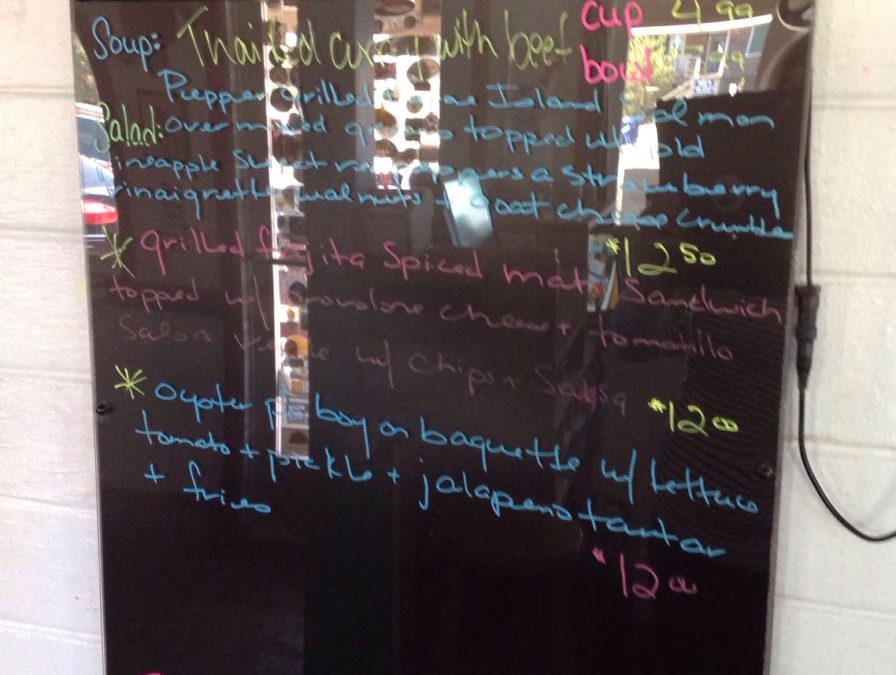 Soup: Thai Red curry with beef cup 4 99
bowl
Pepper grilled Island Salmon
Salad: over mixed greens topped w/
pineapple Sweet red peppers a strawberry
vinaigrette walnuts + goat cheese crumbles
* grilled fajita Spiced *12 50
Sandwich
topped w/ Provolone cheese + tomatillo
Salsa Verde w/ chips + Salsa
*12 00
* oyster po boy on baguette w/ lettuce
tomato + pickle + jalapeno tartar
+ fries
*12 00